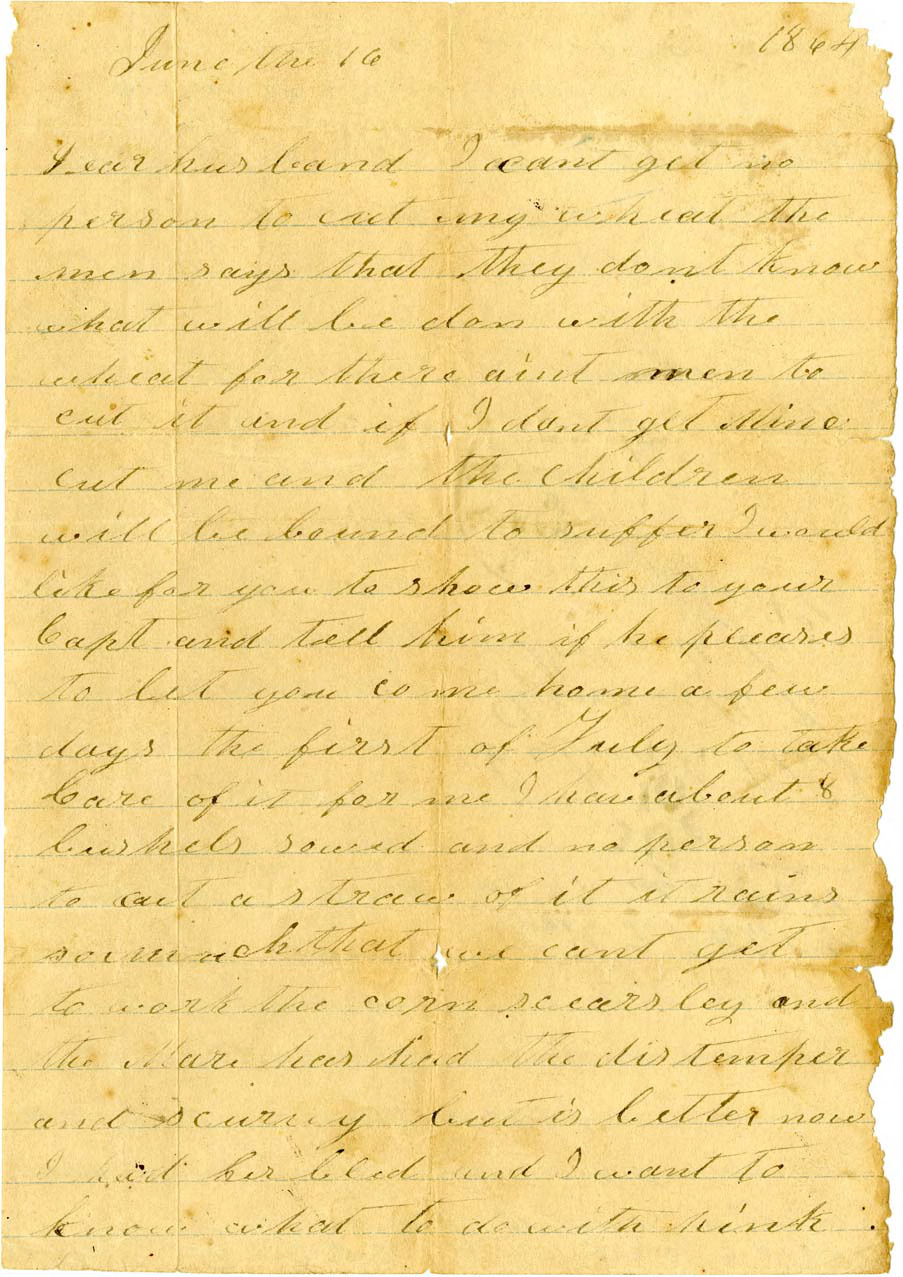 June the 16 1864
Dear husband I cant get no
person to cut my wheat the
men says that they dont know
what will be don with the
wheat for there aint men to
cut it and if I dont get Mine
cut me and the Children
will be bound to suffer I would
like for you to show this to your
Capt and tell him if he pleases
to let you come home a few
days the first of July to take
Care of it for me I have about 8
bushels sowed and no person
to cut a straw of it it rains
so much that we cant get
to work the corn scearsley and
the Mare has had the distemper
and scurvy but is better now
I had her bled and I want to
know what to do with hink